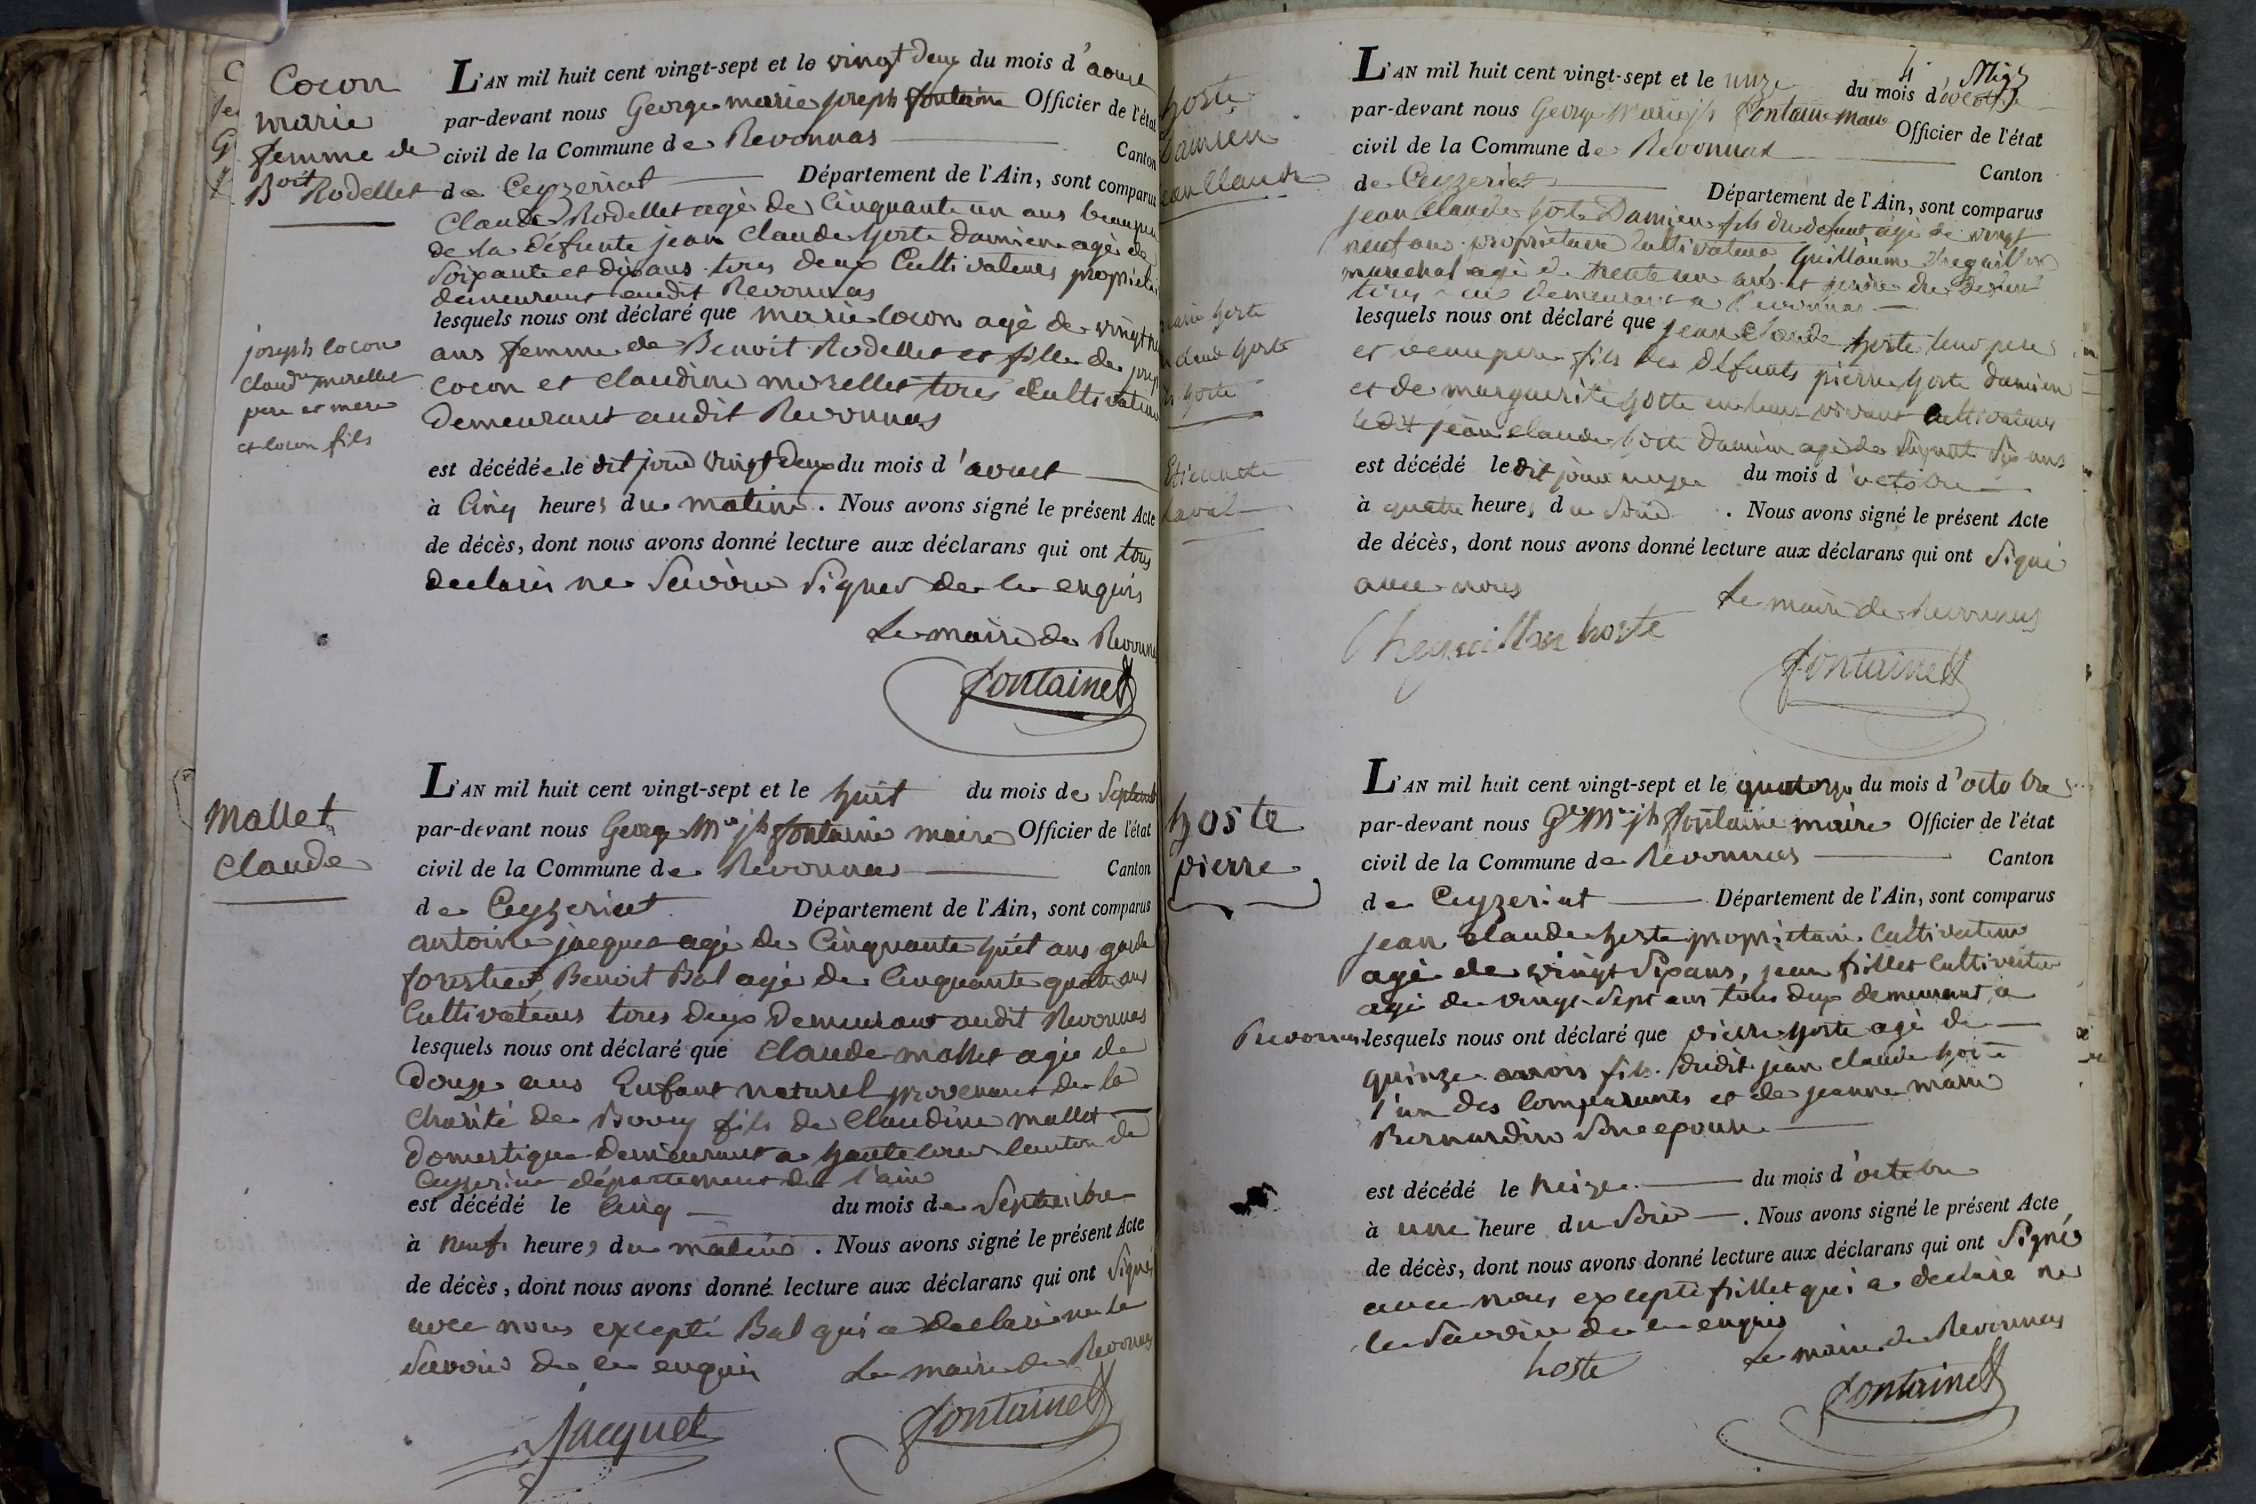 Cocon
marie
femme de
Boit Rodellet
joseph cocon
claudne morellet
pere et mere
et cocon fils
L'AN mil huit cent vingt-sept et le vingt deux du mois d'aout
par-devant nous George marie joseph fontaine Officier de l'état
civil de la Commune de Revonnas Canton
de Ceyzeriat Département de l'Ain, sont comparus
Claude Rodellet agé de Cinquante un ans beaupere
de la défunte jean Claude hoste damien agé de
Soixante et dix ans tous deux Cultivateurs proprietai
demeurant audit Revonnas
lesquels nous ont déclaré que marie cocon agé de vingt
ans femme de Benoit Rodellet et fille de josep
cocon et claudine morellet tous Cultivateurs
Demeurant audit Revonnas
est décédée le dit jour vingt deux du mois d'aout
à Cinq heures du matin. Nous avons signé le présent Acte
de décès, dont nous avons donné lecture aux déclarans qui ont tous
declarés ne Savoir Signer de ce enquis
Le maire de Revonnas
fontaine
Mallet
Claude
L'AN mil huit cent vingt-sept et le huit du mois de Septembre
par-devant nous George Mie jh fontaine maire Officier de l'état
civil de la Commune de Revonnas Canton
de Ceyzeriat Département de l'Ain, sont comparus
antoine jacquet agé de Cinquante huit ans garde
forestier, Benoit Bal agé de Cinquante quatre ans
Cultivateurs tous deux Demeurant audit Revonnas
lesquels nous ont déclaré que Claude mallet agé de
Douze ans Enfant naturel provenant de la
Charité de Bourg fils de Claudine mallet
Domestique Demeurant a hautecour canton de
Ceyzeriat département de l'ain
est décédé le Cinq du mois de Septembre
à neuf heures du matin. Nous avons signé le présent Acte
de décès, dont nous avons donné lecture aux déclarans qui ont Signés
avec nous excepté Bal qui a declaré ne le
Savoir de ce enquis Le maire de Revonnas
Jacquet fontaine
hoste
Damien
jean Claude
marie hoste
claude hoste
hoste
Etiennette
L'AN mil huit cent vingt-sept et le onze du mois d'octobre
par-devant nous George Marie jh fontaine maire Officier de l'état
civil de la Commune de Revonnas Canton
de Ceyzeriat Département de l'Ain, sont comparus
jean Claude hoste Damien fils du defunt agé de vingt
neuf ans proprietaire Cultivateur Guillaume Cheguillon
marechal agé de trente un ans et gendre du Defunt
tous deux Demeurant a Revonnas
lesquels nous ont déclaré que jean Claude hoste leur pere
et beaupere fils des défunts pierre hoste damien
et de marguerite hoste en leur vivant Cultivateurs
ledit jean claude hoste Damien agé de Soixante Six ans
est décédé le dit jour onze du mois d'octobre
à quatre heures du Soir. Nous avons signé le présent Acte
de décès, dont nous avons donné lecture aux déclarans qui ont Signé
avec nous
Le maire de Revonnas
Cheguillon hoste
fontaine
hoste
pierre
L'AN mil huit cent vingt-sept et le quatorze du mois d'octobre
par-devant nous Ge Mie jh fontaine maire Officier de l'état
civil de la Commune de Revonnas Canton
de Ceyzeriat Département de l'Ain, sont comparus
jean Claude hoste proprietaire Cultivateur
agé de vingt Six ans, jean fillet Cultivateur
agé de vingt-Sept ans tous deux demeurant a
Revonnas lesquels nous ont déclaré que pierre hoste agé de
quinze mois fils dudit jean claude hoste
l'un des Comparants et de jeanne marie
Bernardin Son epouse
est décédé le treize du mois d'octobre
à une heure du Soir. Nous avons signé le présent Acte
de décès, dont nous avons donné lecture aux déclarans qui ont Signés
avec nous excepté fillet qui a declaré ne
le Savoir de ce enquis
hoste Le maire de Revonnas
fontaine